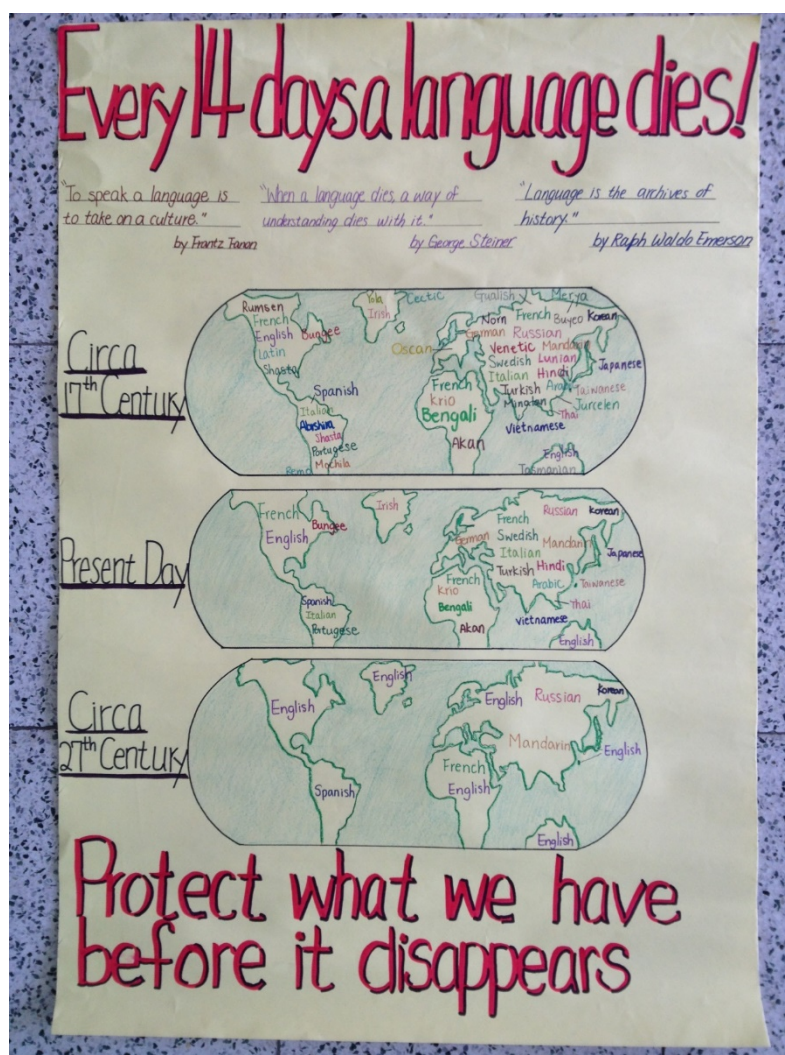 Every 14 days a language dies!
"To speak a language is
to take on a culture."
by Frantz Fanon
"When a language dies, a way of
understanding dies with it."
by George Steiner
"Language is the archives of
history."
by Ralph Waldo Emerson
Circa
17th Century
Rumsen
French
English
Bungee
Latin
Shasta
Spanish
Italian
Abishira
Shasta
Portuguese
Mochila
Yola
Irish
Celtic
Oscan
Gualish
Merya
Norn
French
Buyeo
Korean
German
Russian
Venetic
Mandarin
Swedish
Lunian
Japanese
Italian
Hindi
Turkish
Arabic
Taiwanese
Jurcelen
Thai
Vietnamese
French
Krio
Bengali
Akan
English
Tasmanian
Present Day
French
Bungee
English
Spanish
Italian
Portugese
Irish
German
French
Russian
Korean
Swedish
Mandarin
Italian
Japanese
Turkish
Hindi
Arabic
Taiwanese
Thai
Vietnamese
French
Krio
Bengali
Akan
English
Circa
27th Century
English
English
English
Russian
Korean
Mandarin
English
French
English
Spanish
English
Protect what we have
before it disappears